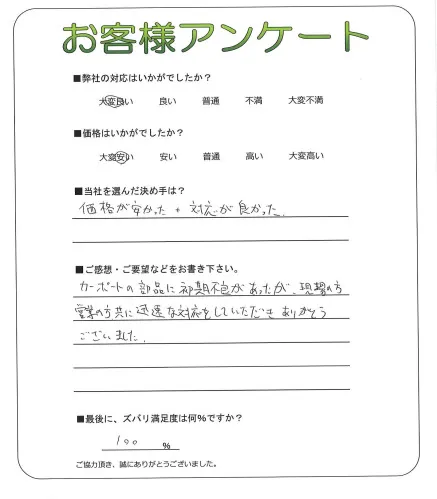 お客様アンケート
■弊社の対応はいかがでしたか?
大変良い 良い 普通 不満 大変不満
■価格はいかがでしたか?
大変安い 安い 普通 高い 大変高い
■当社を選んだ決め手は?
価格が安かった + 対応が良かった.
■ご感想・ご要望などをお書き下さい。
カーポートの部品に初期不良があったが、現場の方
営業の方共に迅速な対応をしていただきありがとう
ございました.
■最後に、ズバリ満足度は何%ですか?
100 %
ご協力頂き、誠にありがとうございました。